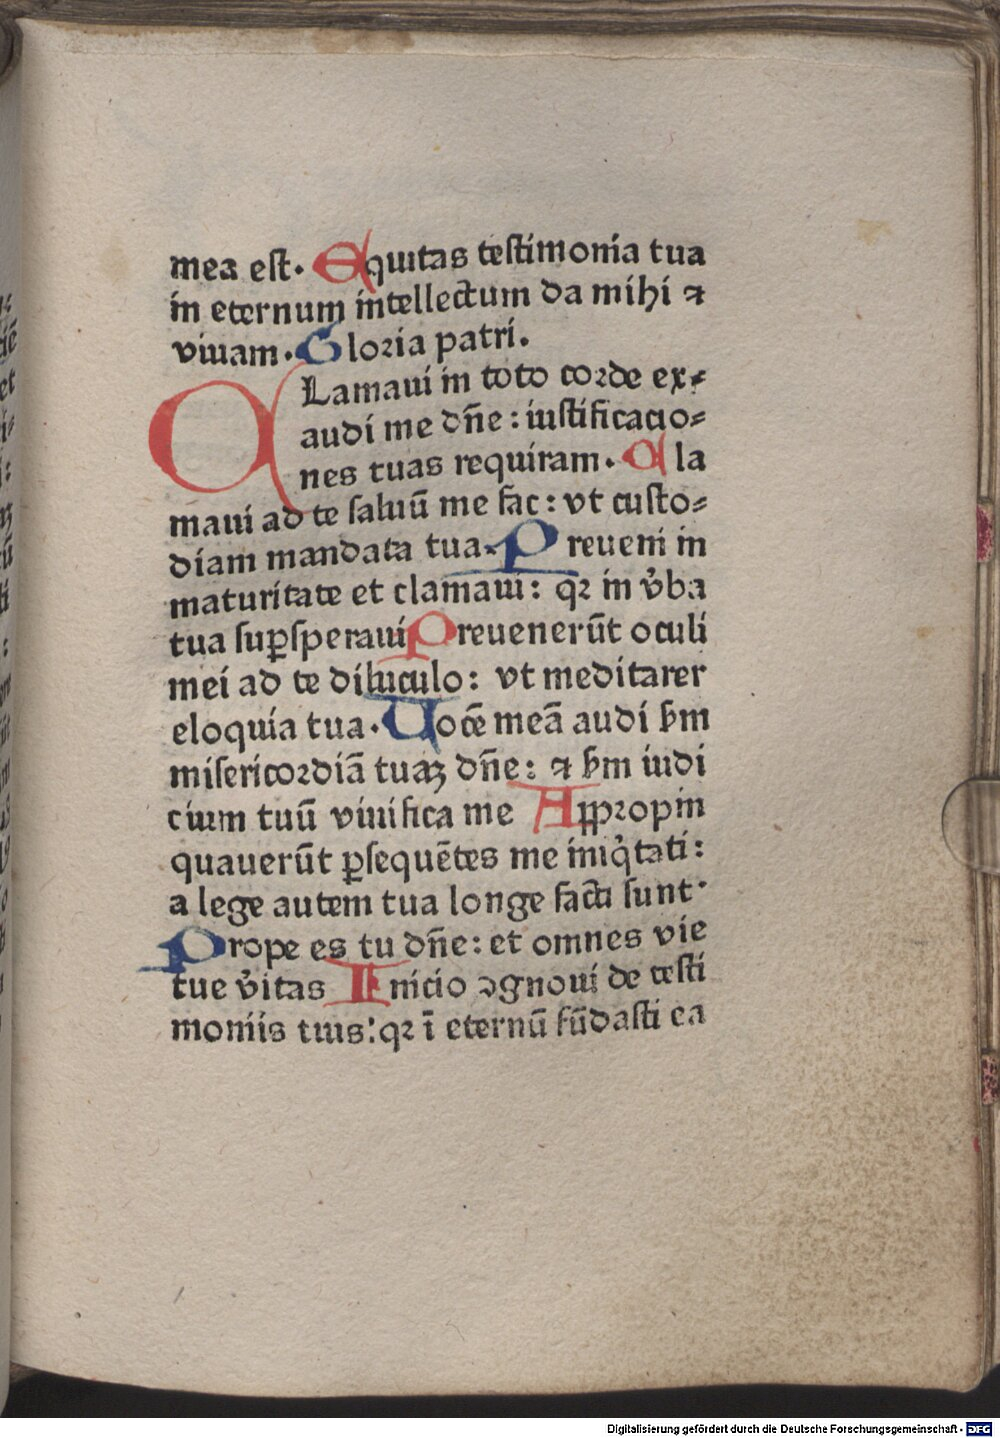 mea est. Equitas testimonia tua
in eternum intellectum da mihi ⁊
viuam. Gloria patri.
CLamaui in toto corde ex⸗
audi me dn̄e : iustificacio⸗
nes tuas requiram. Cla
maui ad te saluū me fac : vt custo⸗
diam mandata tua. Preueni in
maturitate et clamaui : qꝛ in v̉ba
tua suꝑsperaui Preuenerūt oculi
mei ad te diluculo : vt meditarer
eloquia tua. Uocē meā audi ẜm
misericordiā tuaꝫ dn̄e : ⁊ ẜm iudi
cium tuū viuifica me Appropin
quauerūt ꝑsequētes me iniq̇tati :
a lege autem tua longe facti sunt.
Prope es tu dn̄e : et omnes vie
tue v̉itas Inicio ꝯgnoui de testi
moniis tuis : qꝛ ī eternū fūdasti ea
Digitalisierung gefördert durch die Deutsche Forschungsgemeinschaft - DFG